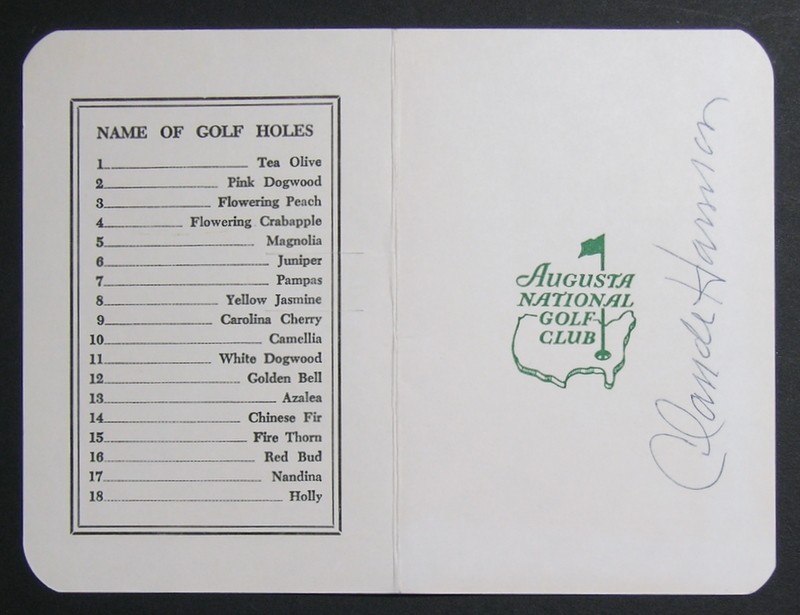 NAME OF GOLF HOLES
1 Tea Olive
2 Pink Dogwood
3 Flowering Peach
4 Flowering Crabapple
5 Magnolia
6 Juniper
7 Pampas
8 Yellow Jasmine
9 Carolina Cherry
10 Camellia
11 White Dogwood
12 Golden Bell
13 Azalea
14 Chinese Fir
15 Fire Thorn
16 Red Bud
17 Nandina
18 Holly
AUGUSTA
NATIONAL
GOLF
CLUB
Claude Harmon